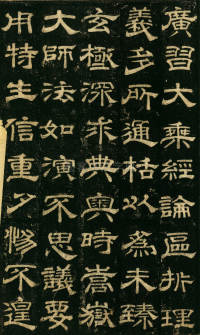 廣習大乘經論區折理
義多所通枯以為未臻
玄極深求典奧時嵩嶽
大師法如演不思議要
用特生信重夕惕不遑